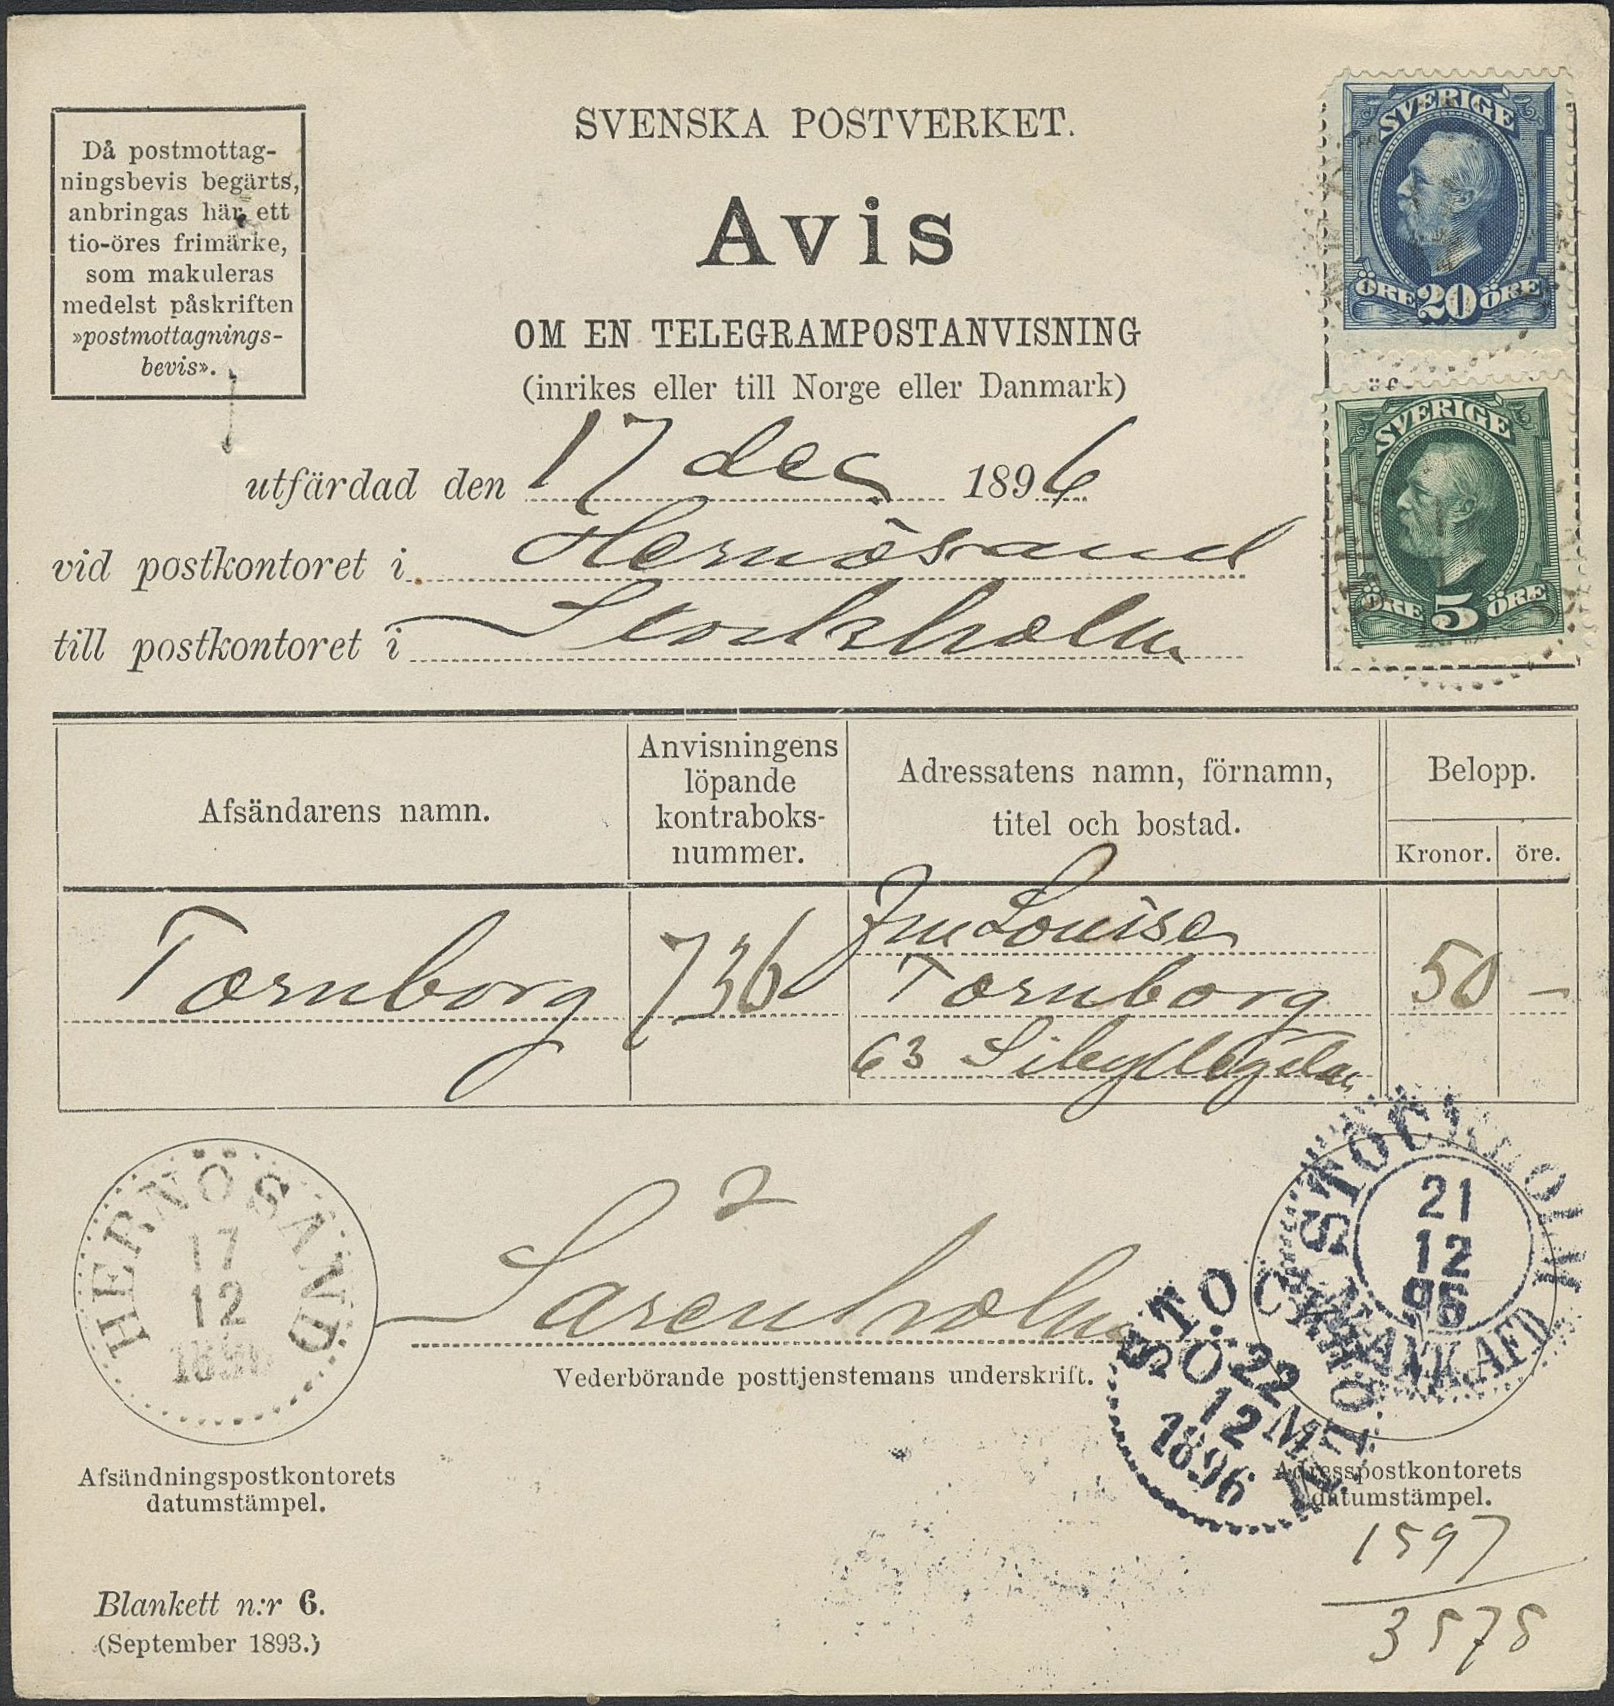 Då postmottag-
ningsbevis begärts,
anbringas här ett
tio-öres frimärke,
som makuleras
medelst påskriften
»postmottagnings-
bevis».
SVENSKA POSTVERKET.
Avis
OM EN TELEGRAMPOSTANVISNING
(inrikes eller till Norge eller Danmark)
SVERIGE
ÖRE 20 ÖRE
SVERIGE
ÖRE 5 ÖRE
utfärdad den 17 dec 1896
vid postkontoret i Hernösand
till postkontoret i Stockholm
Afsändarens namn.
Anvisningens
löpande
kontraboks-
nummer.
Adressatens namn, förnamn,
titel och bostad.
Belopp.
Kronor. öre.
Törnborg
736
Fru Louise
Törnborg
63 Sibyllegatan
50 —
HERNÖSAND
17
12
1896
STOCKHOLM
21
12
96
BANKAFD
STOCKHOLM
22
12
1896
Vederbörande posttjenstemans underskrift.
Afsändningspostkontorets
datumstämpel.
Adresspostkontorets
datumstämpel.
1597
3575
Blankett n:r 6.
(September 1893.)